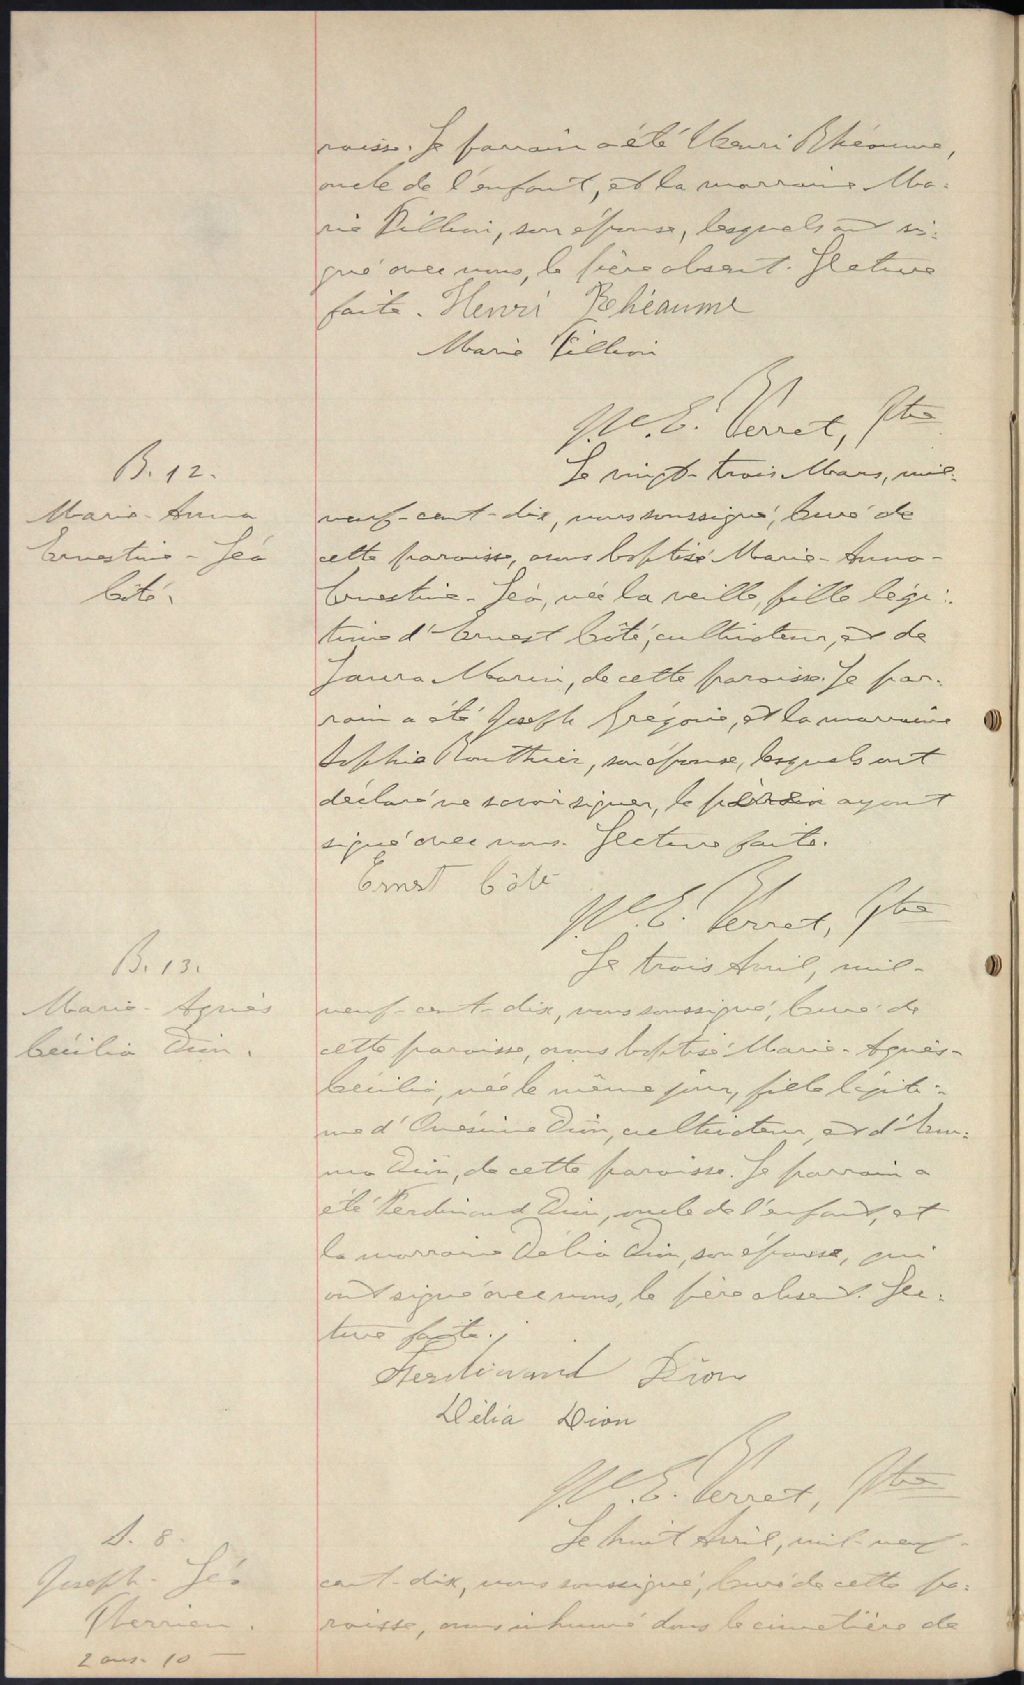 roisse. Le parrain a été Henri Rhéaume,
oncle de l'enfant, et la marraine Ma-
rie Fillion, son épouse, lesquels ont si-
gné avec nous, le père absent. Lecture
faite. Henri Rhéaume
Marie Fillion
Verret, Ptre
B. 12.
Marie-Anna
Ernestine-Léa
Côté.
Le vingt-trois Mars, mil-
neuf-cent-dix, nous soussigné, Curé de
cette paroisse, avons baptisé Marie-Anna-
Ernestine-Léa, née la veille, fille légi-
time d'Ernest Côté, cultivateur, et de
Laura Morin, de cette paroisse. Le par-
rain a été Joseph Grégoire, et la marraine
Sophie Routhier, son épouse, lesquels ont
déclaré ne savoir signer, le père ayant
signé avec nous. Lecture faite.
Ernest Côté
Verret, Ptre
B. 13.
Marie-Agnès
Cécilia Dion.
Le trois Avril, mil-
neuf-cent-dix, nous soussigné, Curé de
cette paroisse, avons baptisé Marie-Agnès-
Cécilia, née le même jour, fille légiti-
me d'Onésime Dion, cultivateur, et d'Em-
ma Dion, de cette paroisse. Le parrain a
été Ferdinand Dion, oncle de l'enfant, et
la marraine Délia Dion, son épouse, qui
ont signé avec nous, le père absent. Lec-
ture faite.
Ferdinand Dion
Délia Dion
Verret, Ptre
S. 8.
Joseph-Léo
Therrien.
2 ans. 10
Le huit Avril, mil-neuf-
cent-dix, nous soussigné, Curé de cette pa-
roisse, avons inhumé dans le cimetière de